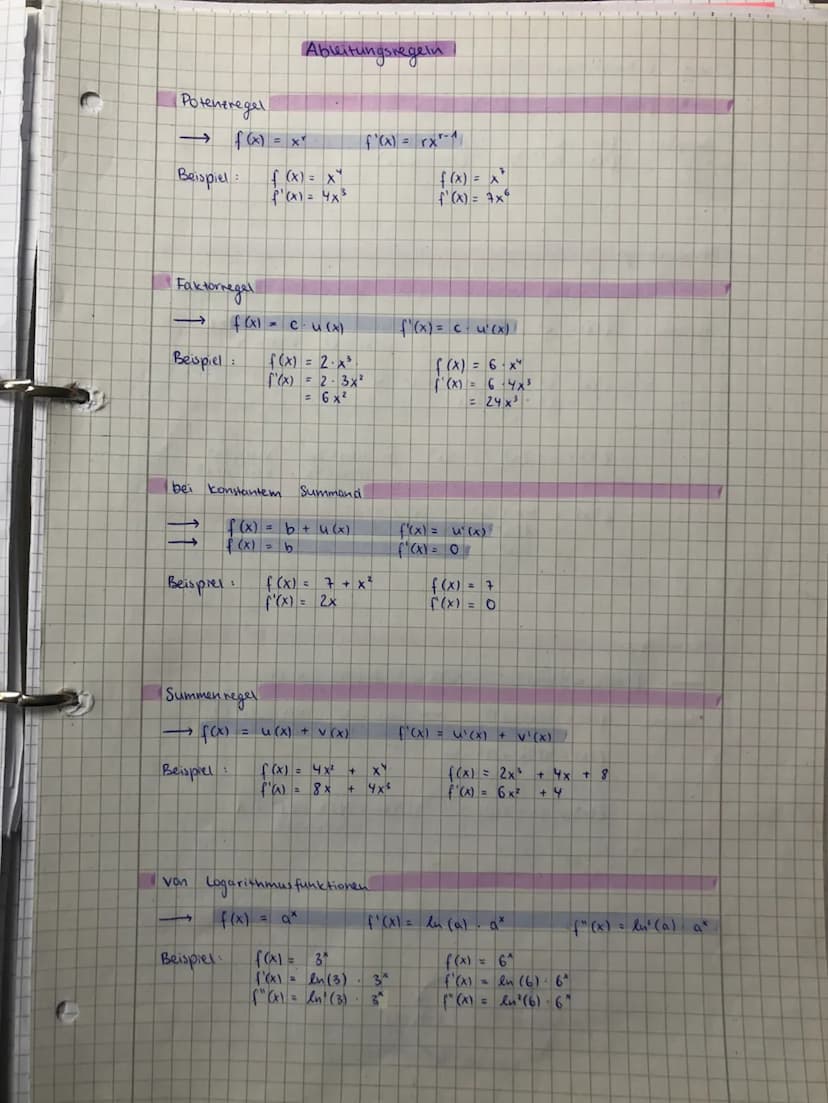 Ableitungsregeln
Potenzregel
→ f(x) = xʳ f'(x) = rxʳ⁻¹
Beispiel: f(x) = x⁴ f(x) = x⁷
f'(x) = 4x³ f'(x) = 7x⁶
Faktorregel
→ f(x) = c · u(x) f'(x) = c · u'(x)
Beispiel: f(x) = 2 · x³ f(x) = 6 · x⁴
f'(x) = 2 · 3x² f'(x) = 6 · 4x³
= 6x² = 24x³
bei konstantem Summand
→ f(x) = b + u(x) f'(x) = u'(x)
→ f(x) = b f'(x) = 0
Beispiel: f(x) = 7 + x² f(x) = 7
f'(x) = 2x f'(x) = 0
Summenregel
→ f(x) = u(x) + v(x) f'(x) = u'(x) + v'(x)
Beispiel: f(x) = 4x² + x⁴ f(x) = 2x³ + 4x + 8
f'(x) = 8x + 4x³ f'(x) = 6x² + 4
von Logarithmusfunktionen
→ f(x) = aˣ f'(x) = ln(a) · aˣ f"(x) = ln²(a) · aˣ
Beispiel: f(x) = 3ˣ f(x) = 6ˣ
f'(x) = ln(3) · 3ˣ f'(x) = ln(6) · 6ˣ
f"(x) = ln²(3) · 3ˣ f"(x) = ln²(6) · 6ˣ